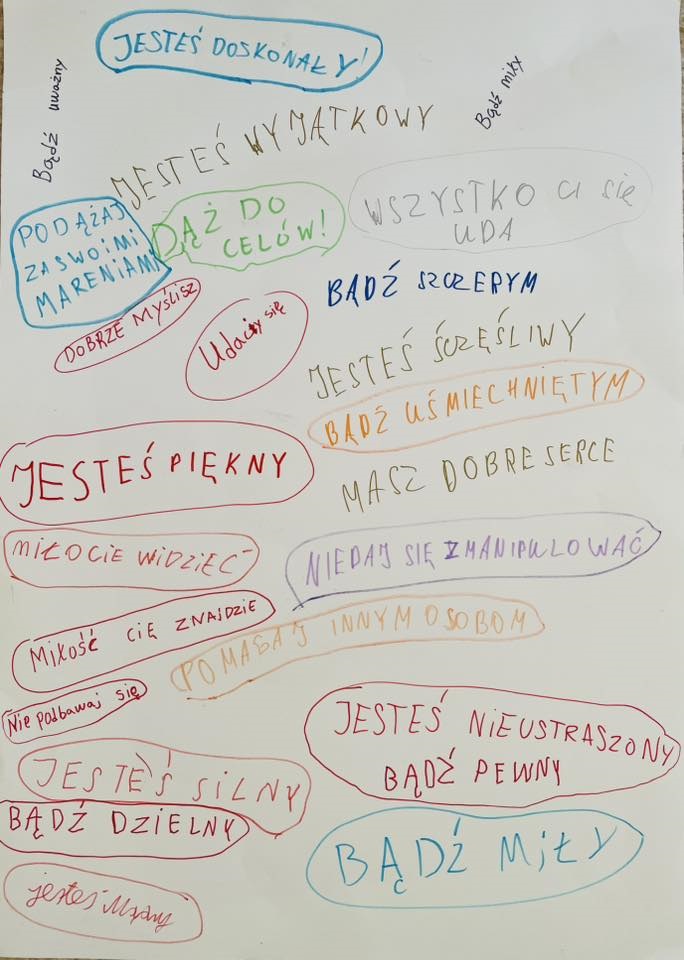 JESTEŚ DOSKONAŁY!
Bądź uważny
Bądź miły
JESTEŚ WYJĄTKOWY
PODĄŻAJ
ZA SWOIMI
MARENIAMI
DĄŻ DO
CELÓW!
WSZYSTKO CI się
UDA
BĄDŹ SZCZERYM
DOBRZE MYŚLISZ
Uda ci się
JESTEŚ ŚCZĘŚLIWY
BĄDŹ UŚMIECHNIĘTYM
JESTEŚ PIĘKNY
MASZ DOBRE SERCE
MIŁO CIE WIDZIEĆ
NIEDAJ SIĘ ZMANIPULOWAĆ
MIŁOŚĆ CIĘ ZNAJDZIE
POMAGAJ INNYM OSOBOM
Nie podbawaj się
JESTEŚ NIEUSTRASZONY
BĄDŹ PEWNY
JESTEŚ SILNY
BĄDŹ DZIELNY
BĄDŹ MIŁY
jesteś Mądry